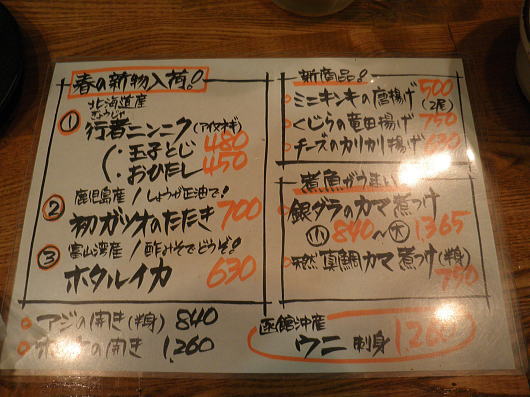 春の新物入荷!
北海道産
① 行者ニンニク(アイヌネギ)
ぎょうじゃ
・玉子とじ 480
・おひたし 450
鹿児島産 / しょうが正油で!
② 初ガツオのたたき 700
富山湾産 / 酢みそでどうぞ!
③ ホタルイカ 630
アジの開き(半身) 840
の開き 1,260
新商品!
ミニキンキの唐揚げ 500(2尾)
くじらの竜田揚げ 750
チーズのカリカリ揚げ 630
煮魚がうまい
銀ダラのカマ煮つけ
小 840〜大 1365
天然真鯛カマ煮つけ(半身)
790
函館沖産
ウニ刺身 1,260